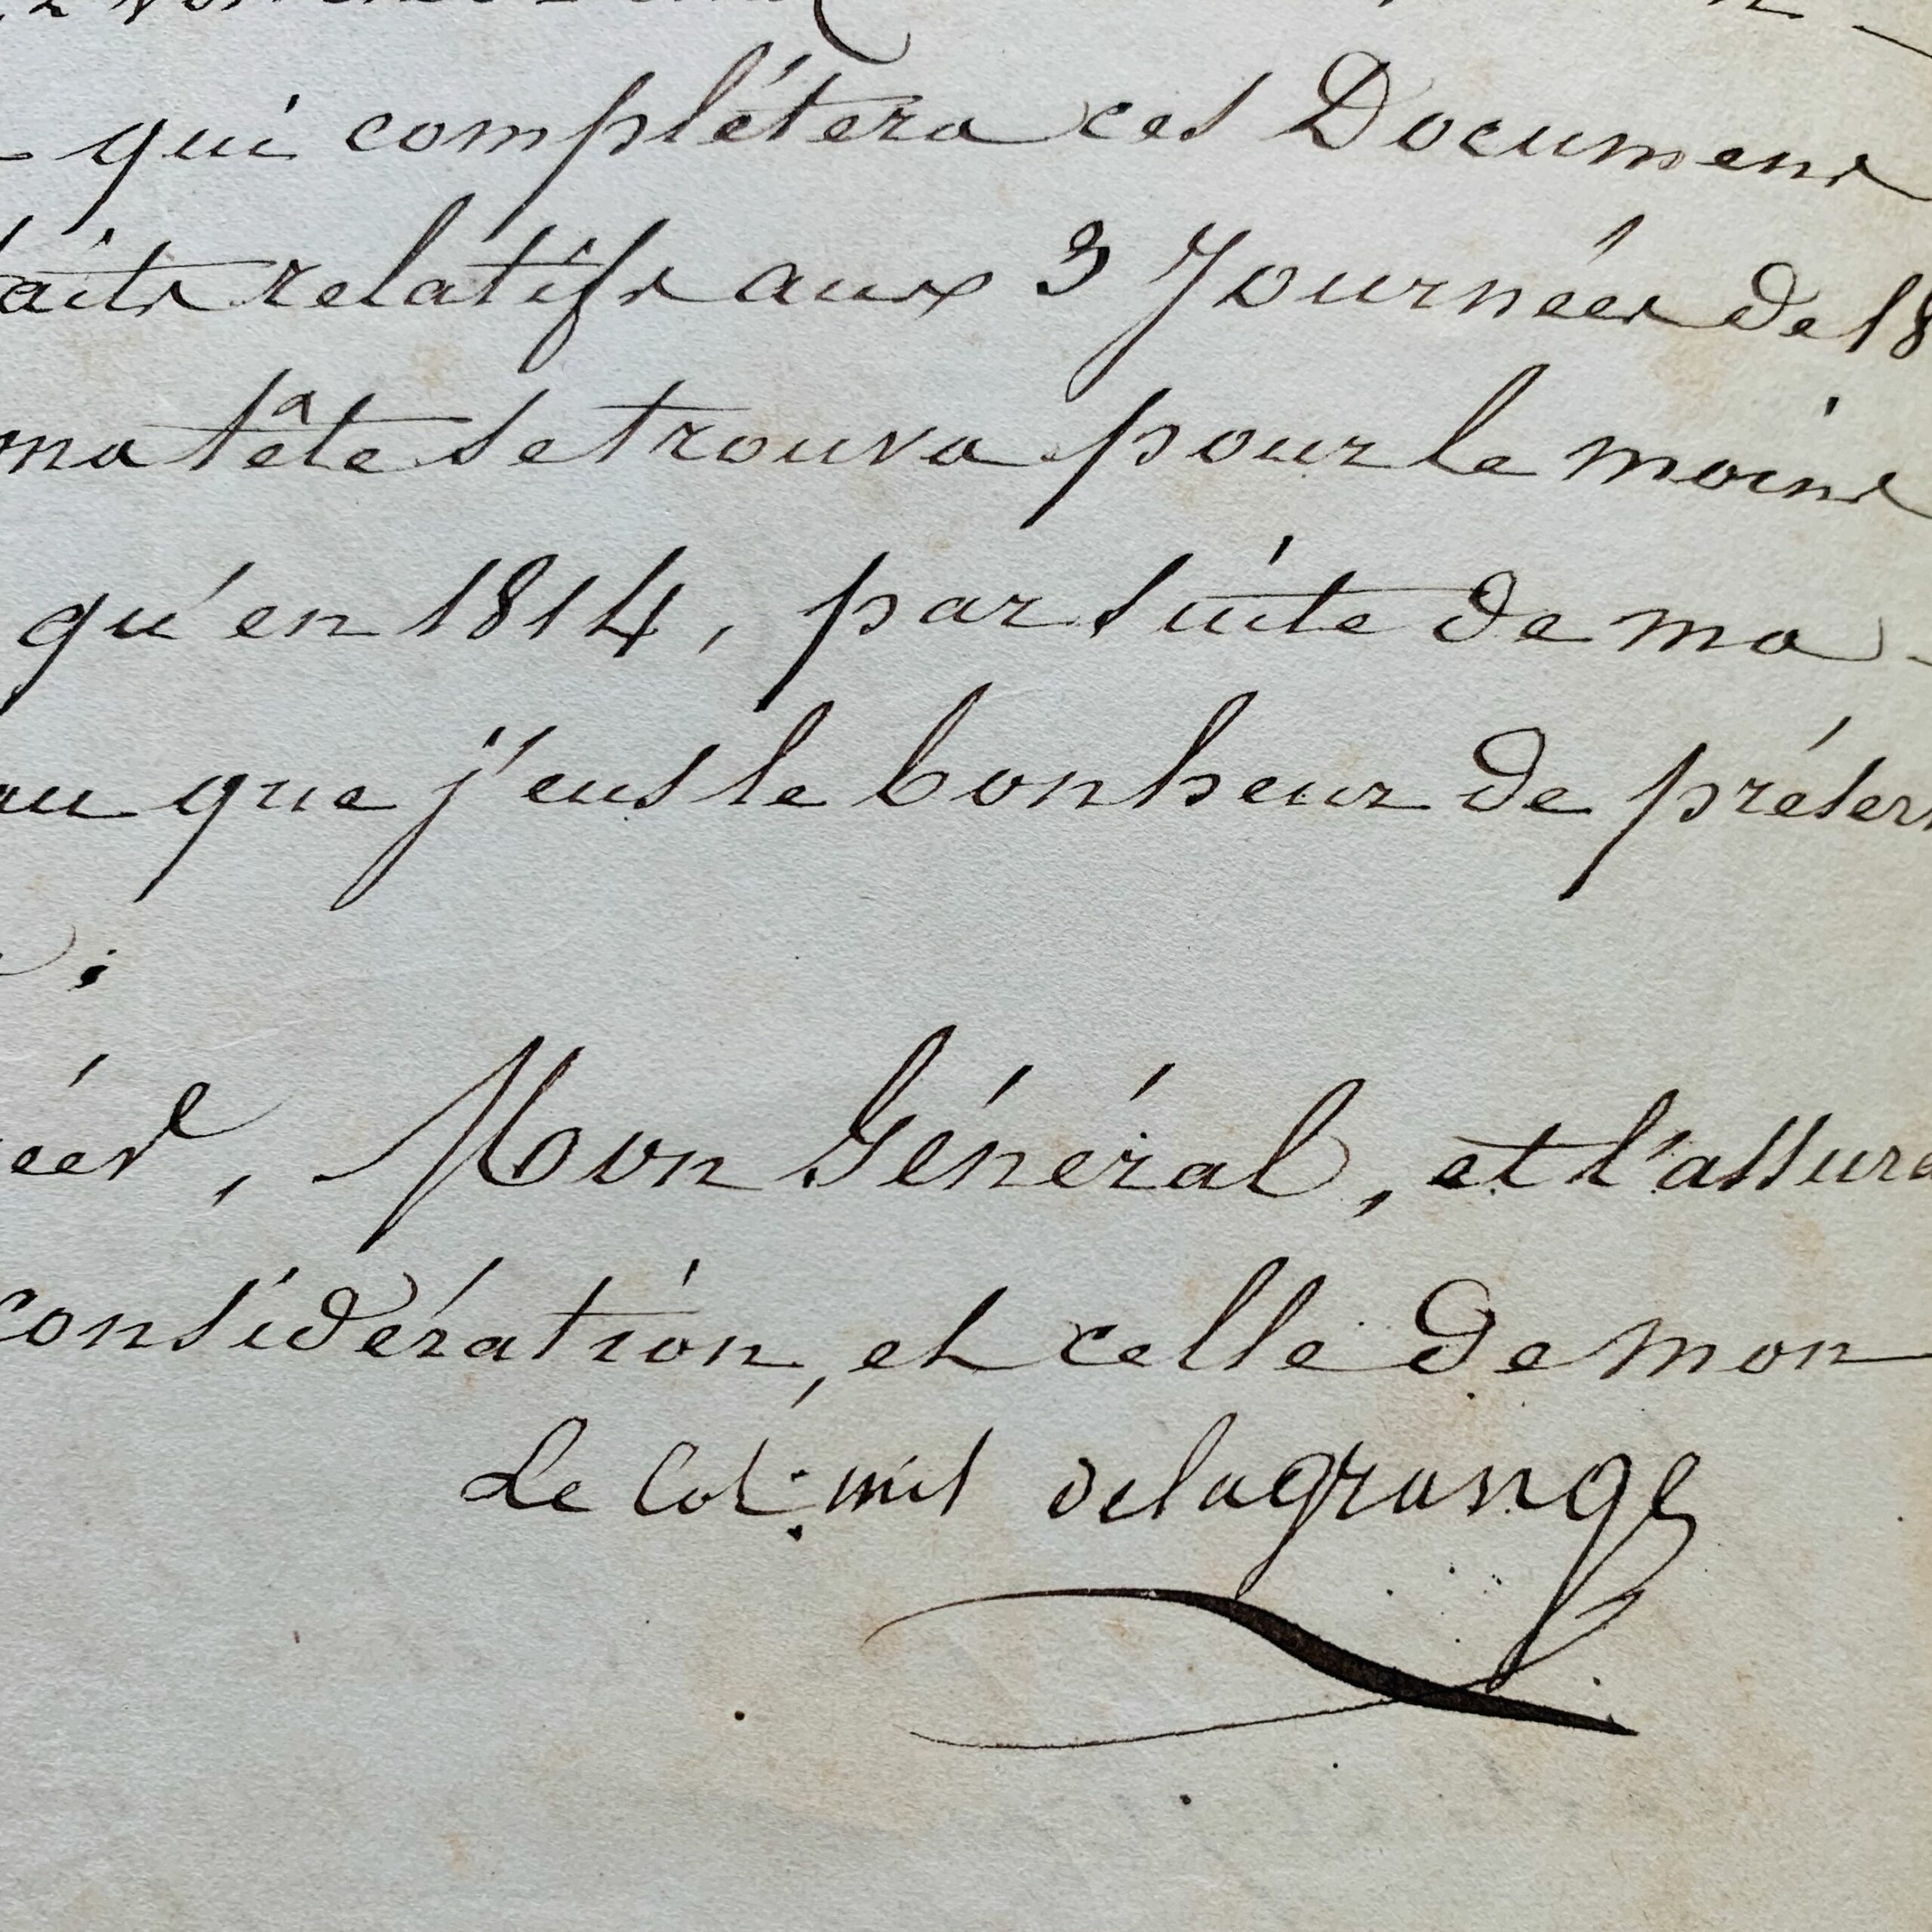 qui complétera ces Documens
aits relatifs aux 3 Journées de 18
ma tête se trouva pour le moins
qu'en 1814, par suite de ma
que j'eus le bonheur de préser
éer, Mon Général, et l'assura
considération, et celle de mon
Le Col. mis delagrange